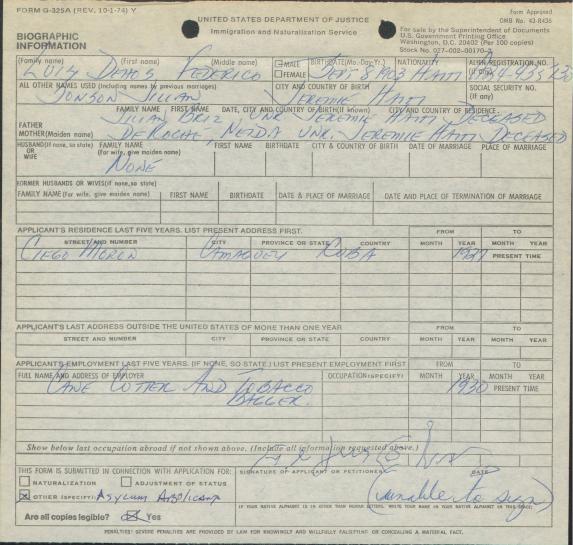 FORM G-325A (REV. 10-1-74) Y
Form Approved
OMB No. 43-R436
UNITED STATES DEPARTMENT OF JUSTICE
Immigration and Naturalization Service
BIOGRAPHIC
INFORMATION
For sale by the Superintendent of Documents
U.S. Government Printing Office
Washington, D.C. 20402 (Per 100 copies)
Stock No. 027-002-00170-2
(Family name) (First name) (Middle name) MALE FEMALE BIRTHDATE(Mo.-Day-Yr.) NATIONALITY ALIEN REGISTRATION NO. (If any)
Luis Federico Sept 8 1903 Haiti
ALL OTHER NAMES USED (Including names by previous marriages) CITY AND COUNTRY OF BIRTH SOCIAL SECURITY NO. (If any)
Jonson Lilian Jeremie Haiti
FAMILY NAME FIRST NAME DATE, CITY AND COUNTRY OF BIRTH(If known) CITY AND COUNTRY OF RESIDENCE.
FATHER Lilian Briz, Unk Jeremie Haiti Deceased
MOTHER(Maiden name) DeRoche, Neida Unk. Jeremie Haiti Deceased
HUSBAND(If none, so state) OR WIFE FAMILY NAME (For wife, give maiden name) FIRST NAME BIRTHDATE CITY & COUNTRY OF BIRTH DATE OF MARRIAGE PLACE OF MARRIAGE
None
FORMER HUSBANDS OR WIVES(if none, so state)
FAMILY NAME (For wife, give maiden name) FIRST NAME BIRTHDATE DATE & PLACE OF MARRIAGE DATE AND PLACE OF TERMINATION OF MARRIAGE
APPLICANT'S RESIDENCE LAST FIVE YEARS. LIST PRESENT ADDRESS FIRST. FROM TO
STREET AND NUMBER CITY PROVINCE OR STATE COUNTRY MONTH YEAR MONTH YEAR
Ciego Moron Camaguey Kuba 1927 PRESENT TIME
APPLICANT'S LAST ADDRESS OUTSIDE THE UNITED STATES OF MORE THAN ONE YEAR FROM TO
STREET AND NUMBER CITY PROVINCE OR STATE COUNTRY MONTH YEAR MONTH YEAR
APPLICANT'S EMPLOYMENT LAST FIVE YEARS. (IF NONE, SO STATE.) LIST PRESENT EMPLOYMENT FIRST FROM TO
FULL NAME AND ADDRESS OF EMPLOYER OCCUPATION(SPECIFY) MONTH YEAR MONTH YEAR
Cane Cotter And Tobacco 1930 PRESENT TIME
Bagger.
Show below last occupation abroad if not shown above. (Include all information requested above.)
THIS FORM IS SUBMITTED IN CONNECTION WITH APPLICATION FOR: SIGNATURE OF APPLICANT OR PETITIONER DATE
NATURALIZATION ADJUSTMENT OF STATUS
OTHER (SPECIFY): Asylum Applicant (unable to sign)
Are all copies legible? Yes
IF YOUR NATIVE ALPHABET IS IN OTHER THAN ROMAN LETTERS, WRITE YOUR NAME IN YOUR NATIVE ALPHABET IN THIS SPACE:
PENALTIES: SEVERE PENALTIES ARE PROVIDED BY LAW FOR KNOWINGLY AND WILLFULLY FALSIFYING OR CONCEALING A MATERIAL FACT.